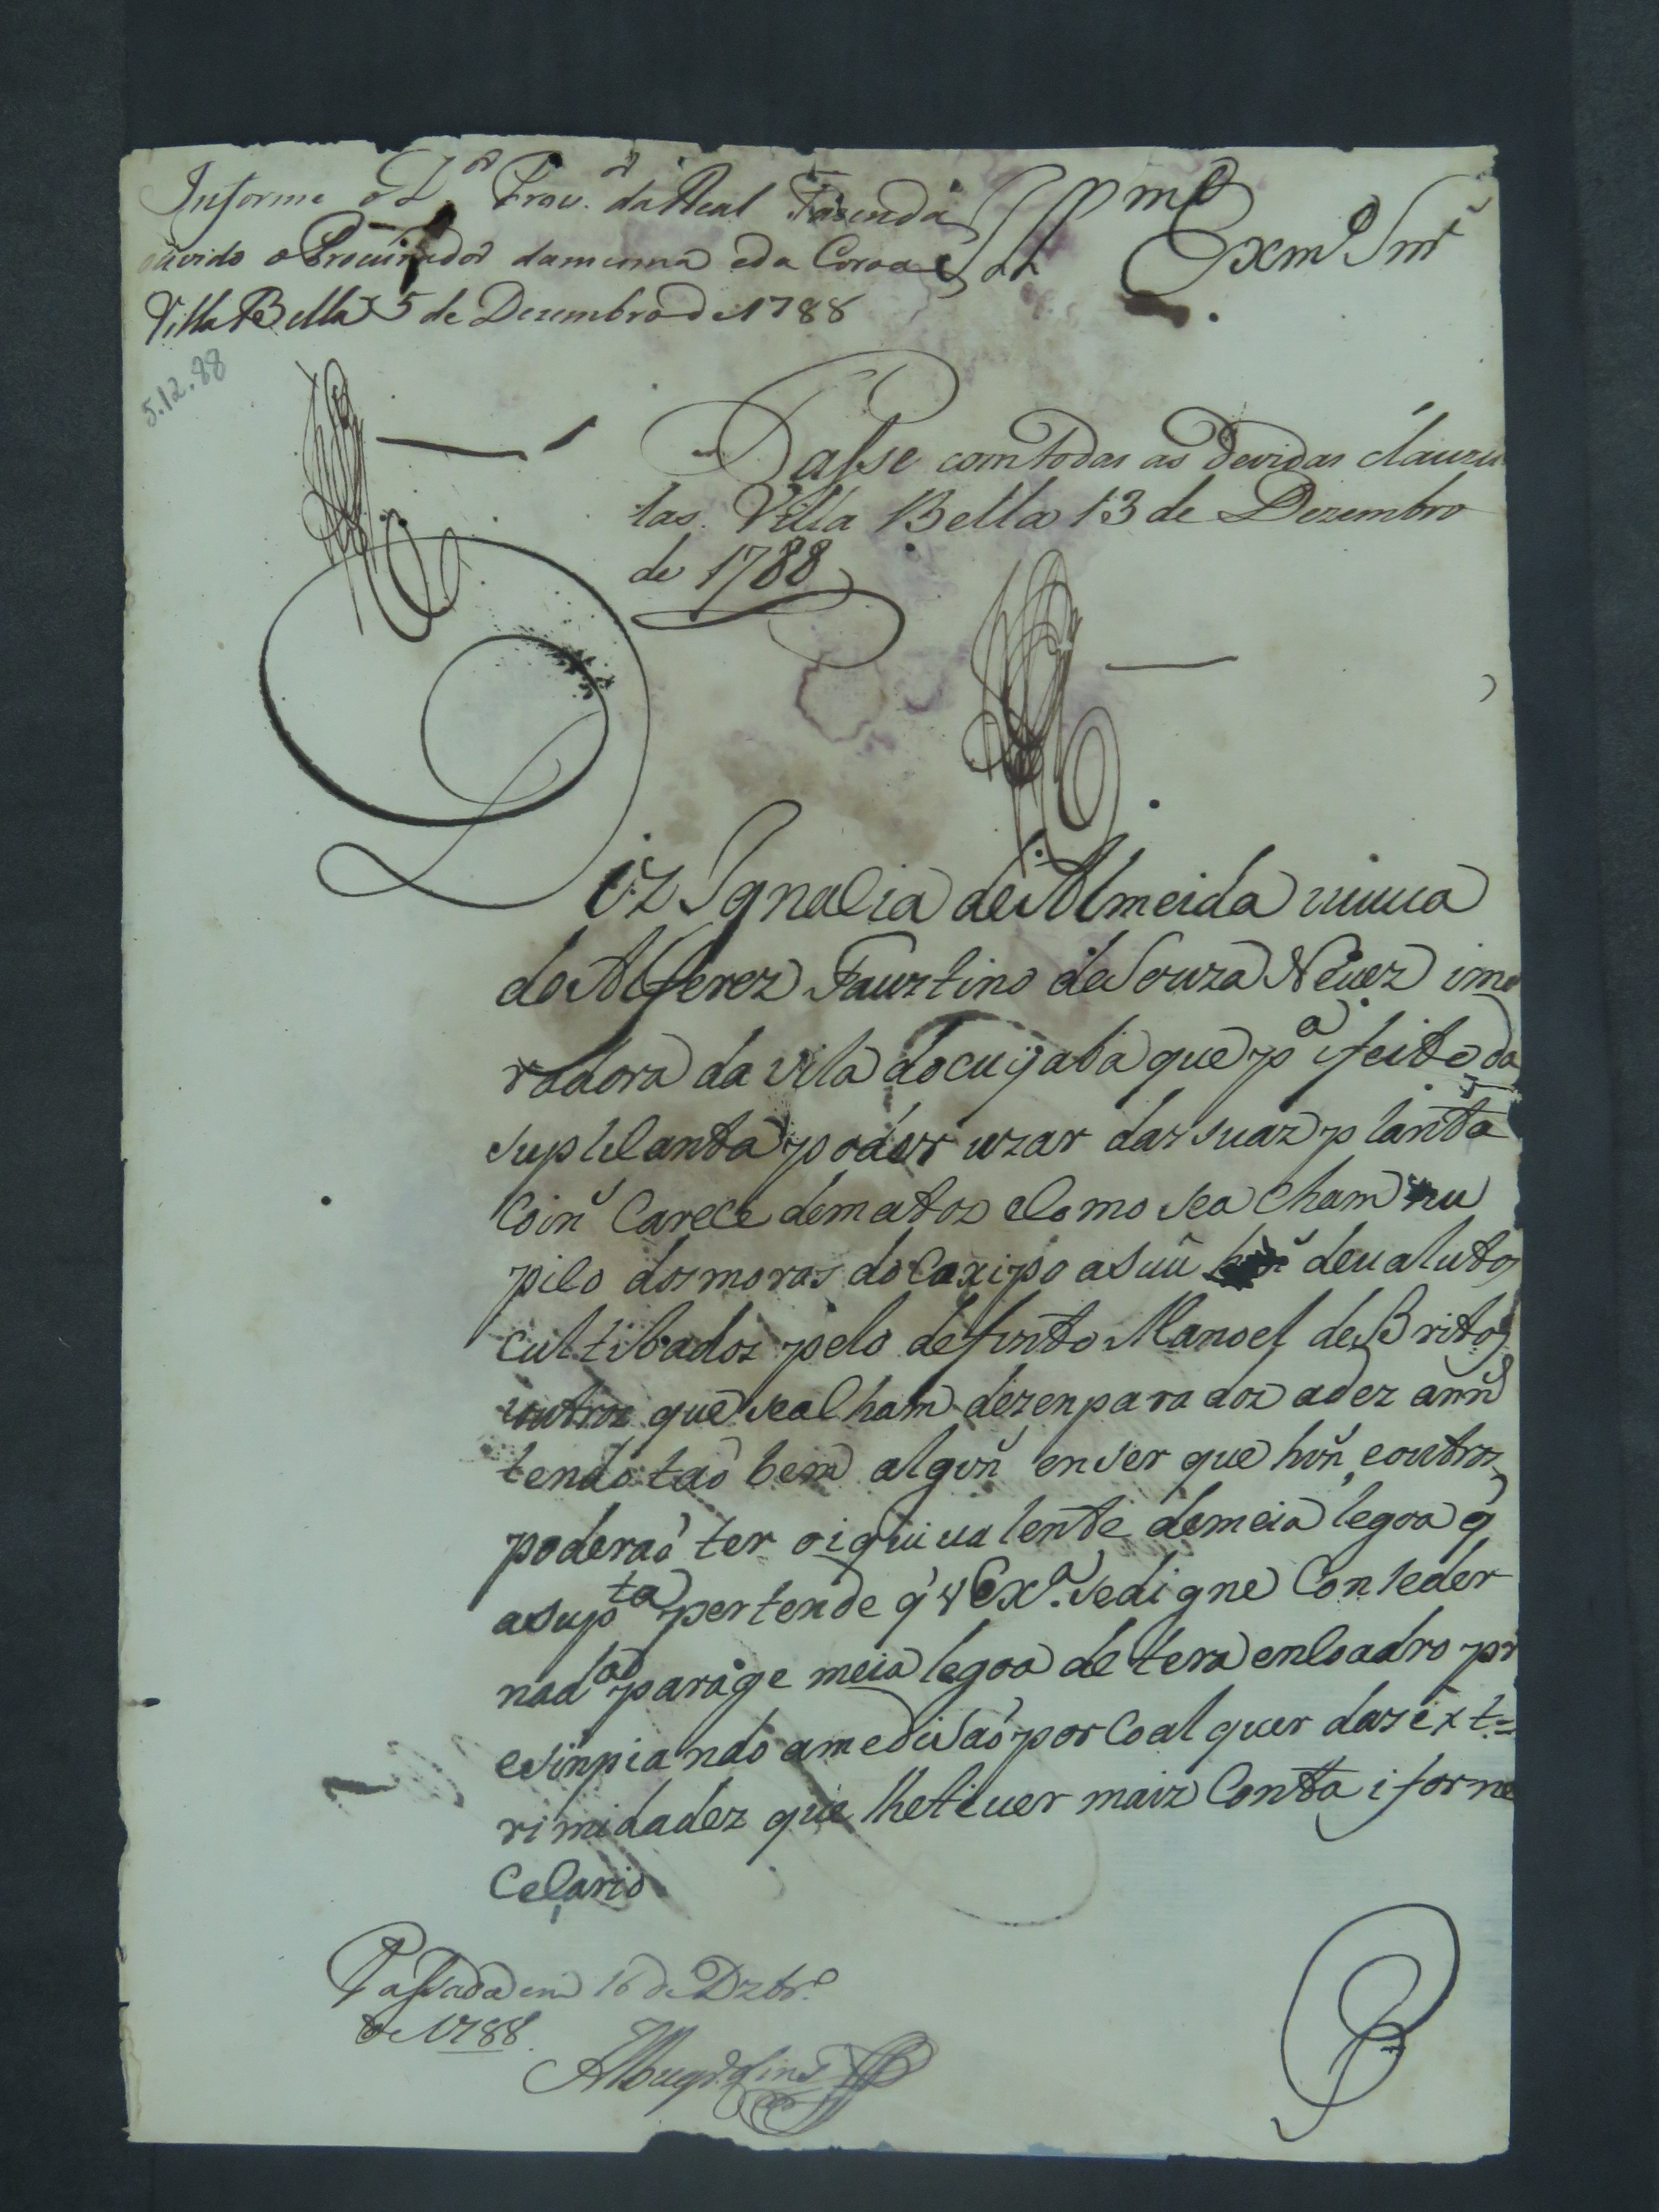 Informe o D.or Prov.or da Real Fazenda
ouvido o Procurador da mesma e da Coroa
Villa Bella 5 de Dezembro de 1788
Illmo e Exmo Snr
5.12.88
Passe com todas as devidas clauzu
las. Villa Bella 13 de Dezembro
de 1788
Diz Ignacia de Almeida viuua
do Alferez Fauztino de Souza Neuez i mo
radora da vila do cuyaba que pa ifeito da
suplicanta poder uzar das suaz planta
Coins Carece de matos e como se acham nu
pilo dos moras do Caxipo asuu deualutos
cultibados pelo defunto Manoel de Brito
i outros que se alham dezenparados a dez anns
tendo tão bem alguns en ser que huns e outros
poderaõ ter o iquiualente de meia legoa q
a supta pertende q V Exa. se digne Conseder
na do parage meia legoa de tera en coadro pr
esinpiando a medisaõ por Coalquer das ext=
rimidadez que lhe tiuer maiz Conta i forne
Celario
Passada em 16 de Dzbr.o
de 1788.